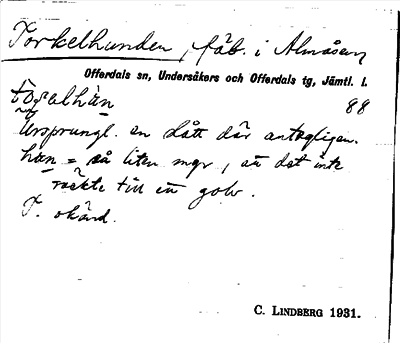 Torkelhunden, fäb. i Almåsen
Offerdals sn, Undersåkers och Offerdals tg, Jämtl. l.
88
Ursprungl. en slått där antagligen.
hän = så liten myr, att det inte
räckte till en golv.
T. okänd.
C. LINDBERG 1931.